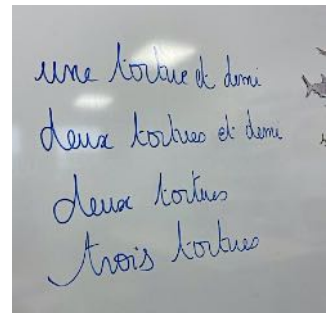 une tortue et demi
deux tortues et demi
deux tortues
trois tortues